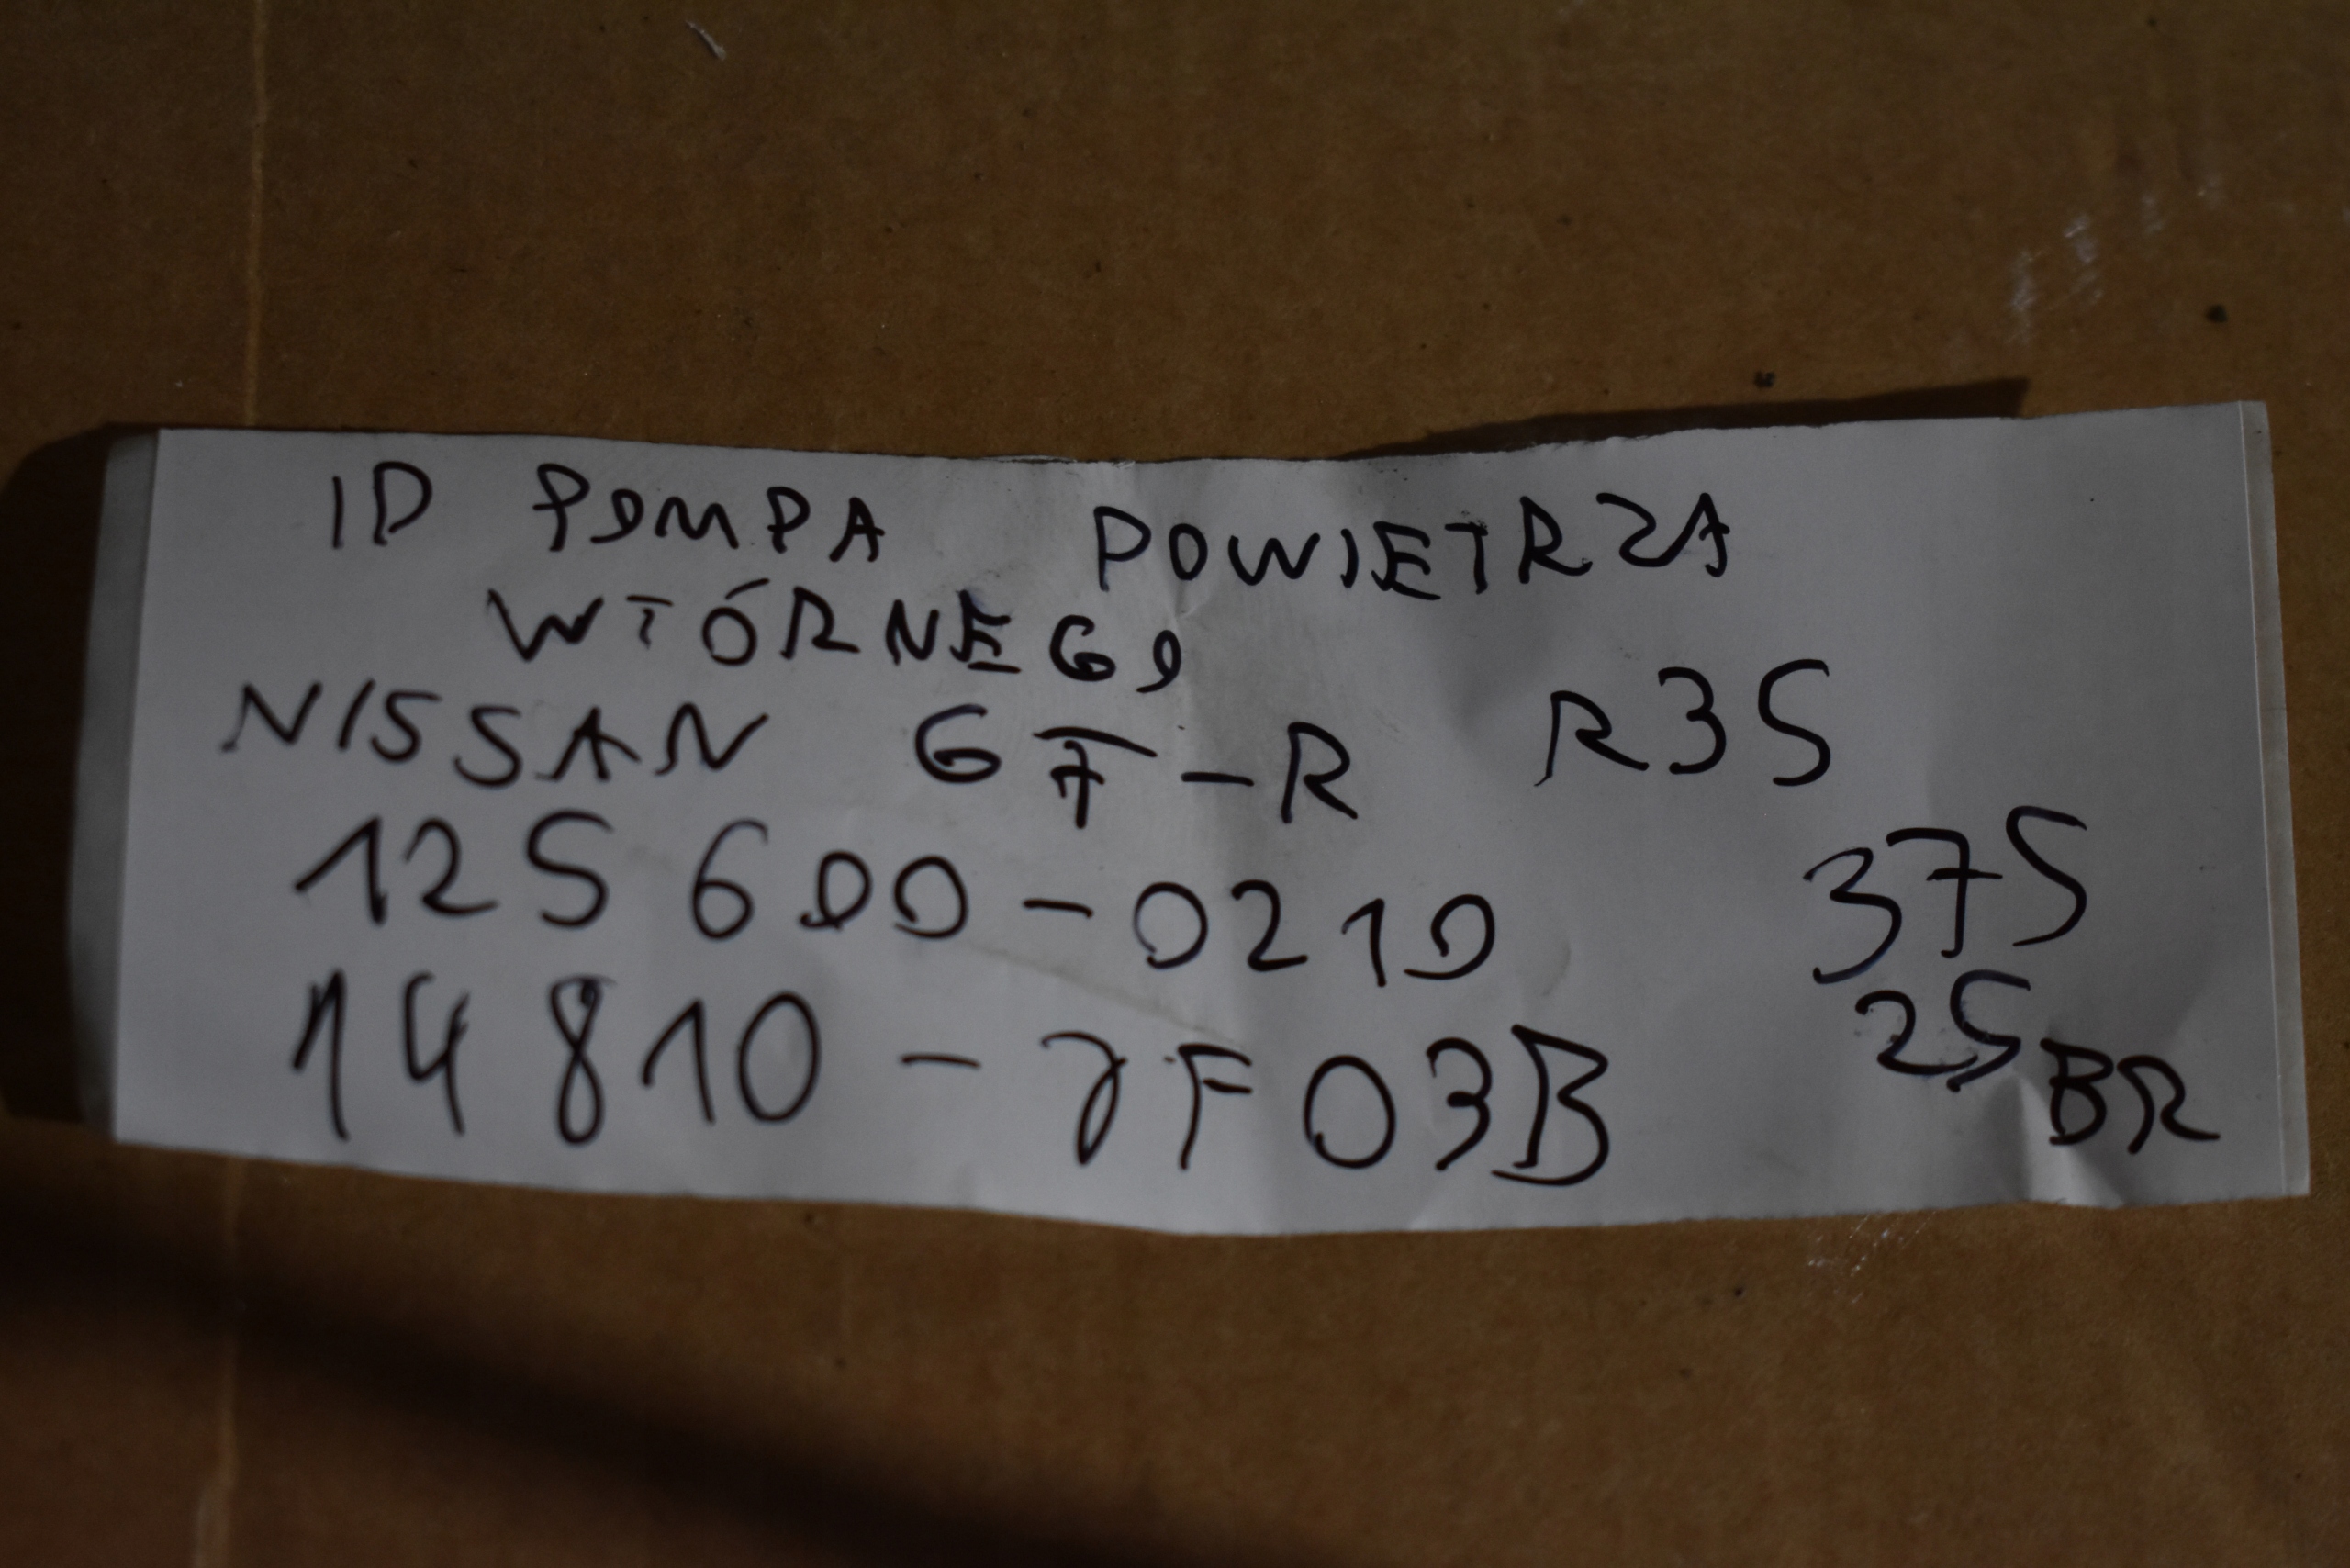 ID POMPA POWIETRZA
WTÓRNEGO
NISSAN GT-R R35
125600-0210 375
14810-7F03B 25BR